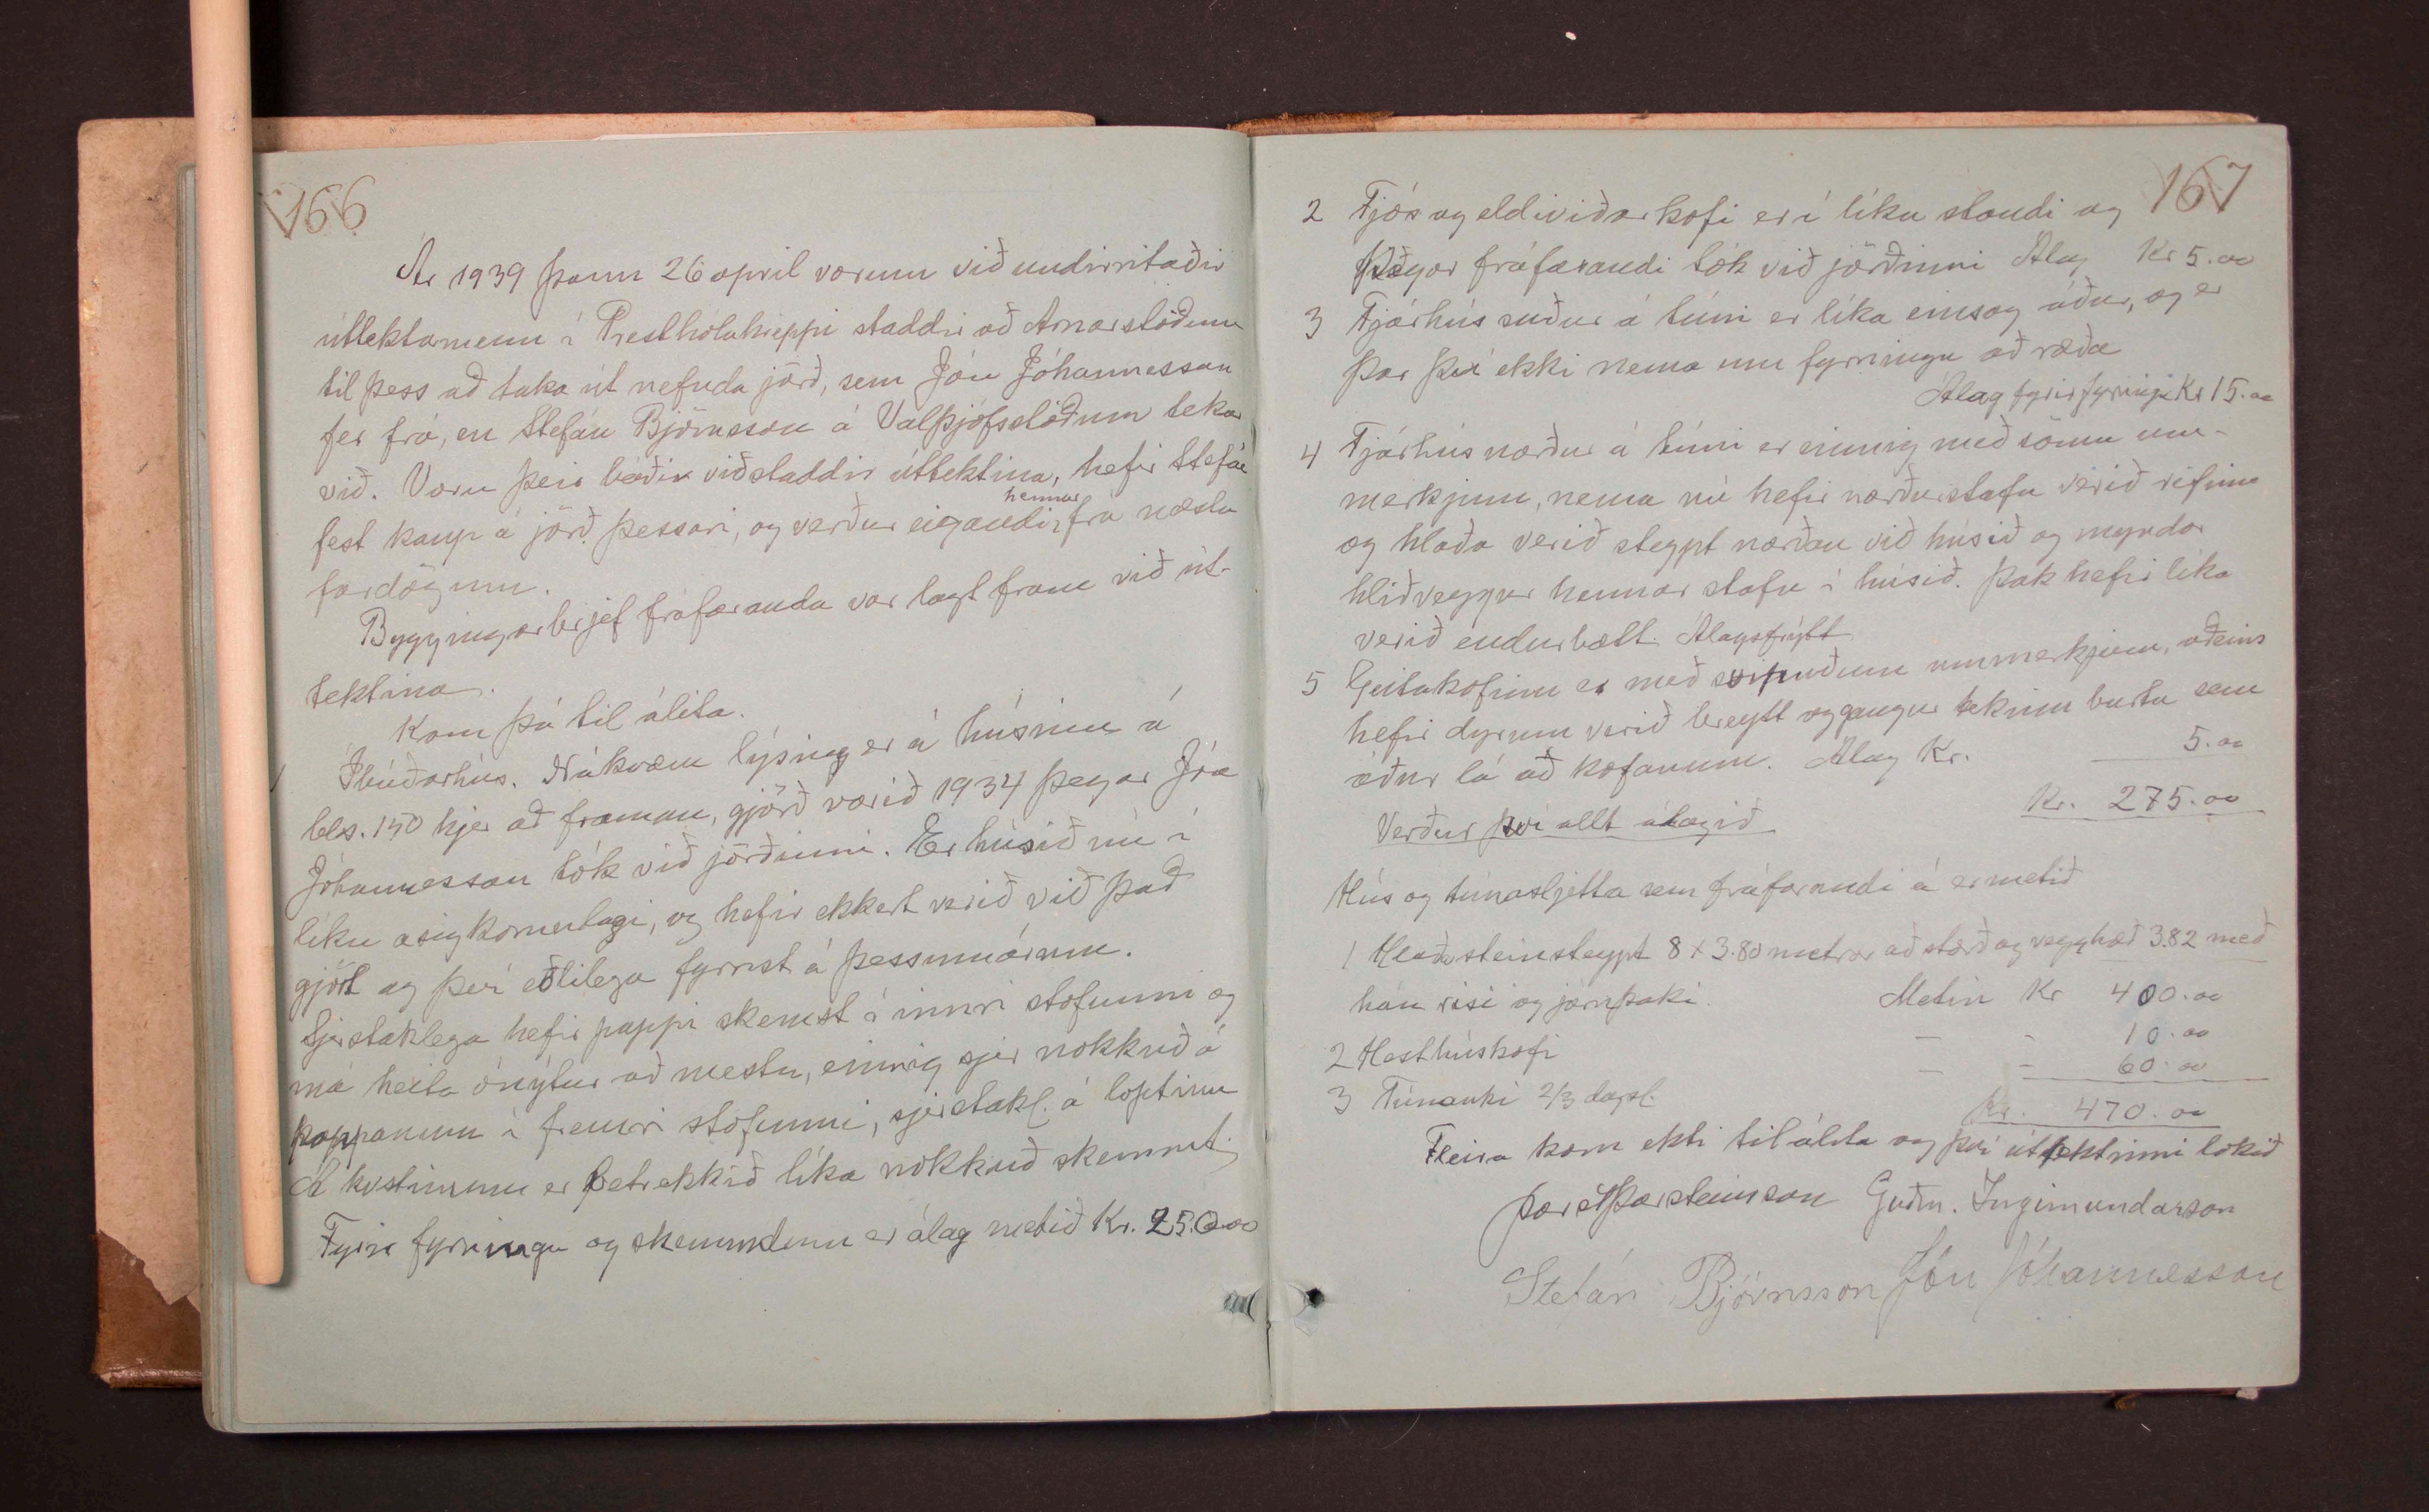 166
Ár 1939 þann 26 april vorum við undirritaðir
úttektarmenn í Presthólahreppi staddir að Arnarstöðum
til þess að taka út nefnda jörð, sem Jón Jóhannesson
fer frá, en Stefán Björnsson á Valþjófsstöðum tekur
við. Voru þeir báðir viðstaddir úttektina, hefir Stefán
fest kaup á jörð þessari, og verður eigandi hennar frá næstu
fardögum.
Byggingarbrjef fráfaranda var lagt fram við út-
tektina.
Kom þá til álita.
1 Íbúðarhús. Nákvæm lýsing er á húsinu á
bls. 150 hjer að framan, gjörð varið 1934 þegar Jón
Jóhannesson tók við jörðinni. Er húsið nú í
líku ásigkomulagi, og hefir ekkert verið við það
gjört og því eðlilega fyrnst á þessum árum.
Sjerstaklega hefir pappi skemst í innri stofunni og
má heita ónýtur að mestu, einnig sjer nokkuð á
pappanum í fremri stofunni, sjerstakl. á loptinu
Á kvistinum er betrekkið líka nokkuð skemmt.
Fyrir fyrningu og skemmdum er álag metið Kr. 250.00
167
2 Fjós og eldiviðarkofi er í líku standi og
þegar fráfarandi tók við jörðinni Álag Kr 5.00
3 Fjárhús suður á túni er líka einsog áður, og er
þar því ekki nema um fyrningu að ræða
Álag fyrir fyrningu Kr 15.00
4 Fjárhús norður á túni er einnig með sömu um-
merkjum, nema nú hefir norðurstafn verið rifinn
og hlaða verið steypt norðan við húsið og myndar
hliðveggur hennar stafn í húsið. Þak hefir líka
verið endurbætt. Álagsfrýtt
5 Geitakofinn er með svipuðum ummerkjum, aðeins
hefir dyrum verið breytt og gangur tekinn burtu sem
áður lá að kofanum. Álag Kr. 5.00
Verður því allt álagið Kr. 275.00
Hús og túnasljetta sem fráfarandi á er metið
1 Hlaða steinsteypt 8 x 3.80 metrar að stærð og vegghæð 3.82 með
háu risi og járnþaki. Metin Kr 400.00
2 Hesthúskofi - - 10.00
3 Túnauki 2/3 dagsl. - - 60.00
Kr. 470.00
Fleira kom ekki til álita og því úttektinni lokið
Þorst Þorsteinsson Guðm. Ingimundarson
Stefán Björnsson Jón Jóhannesson